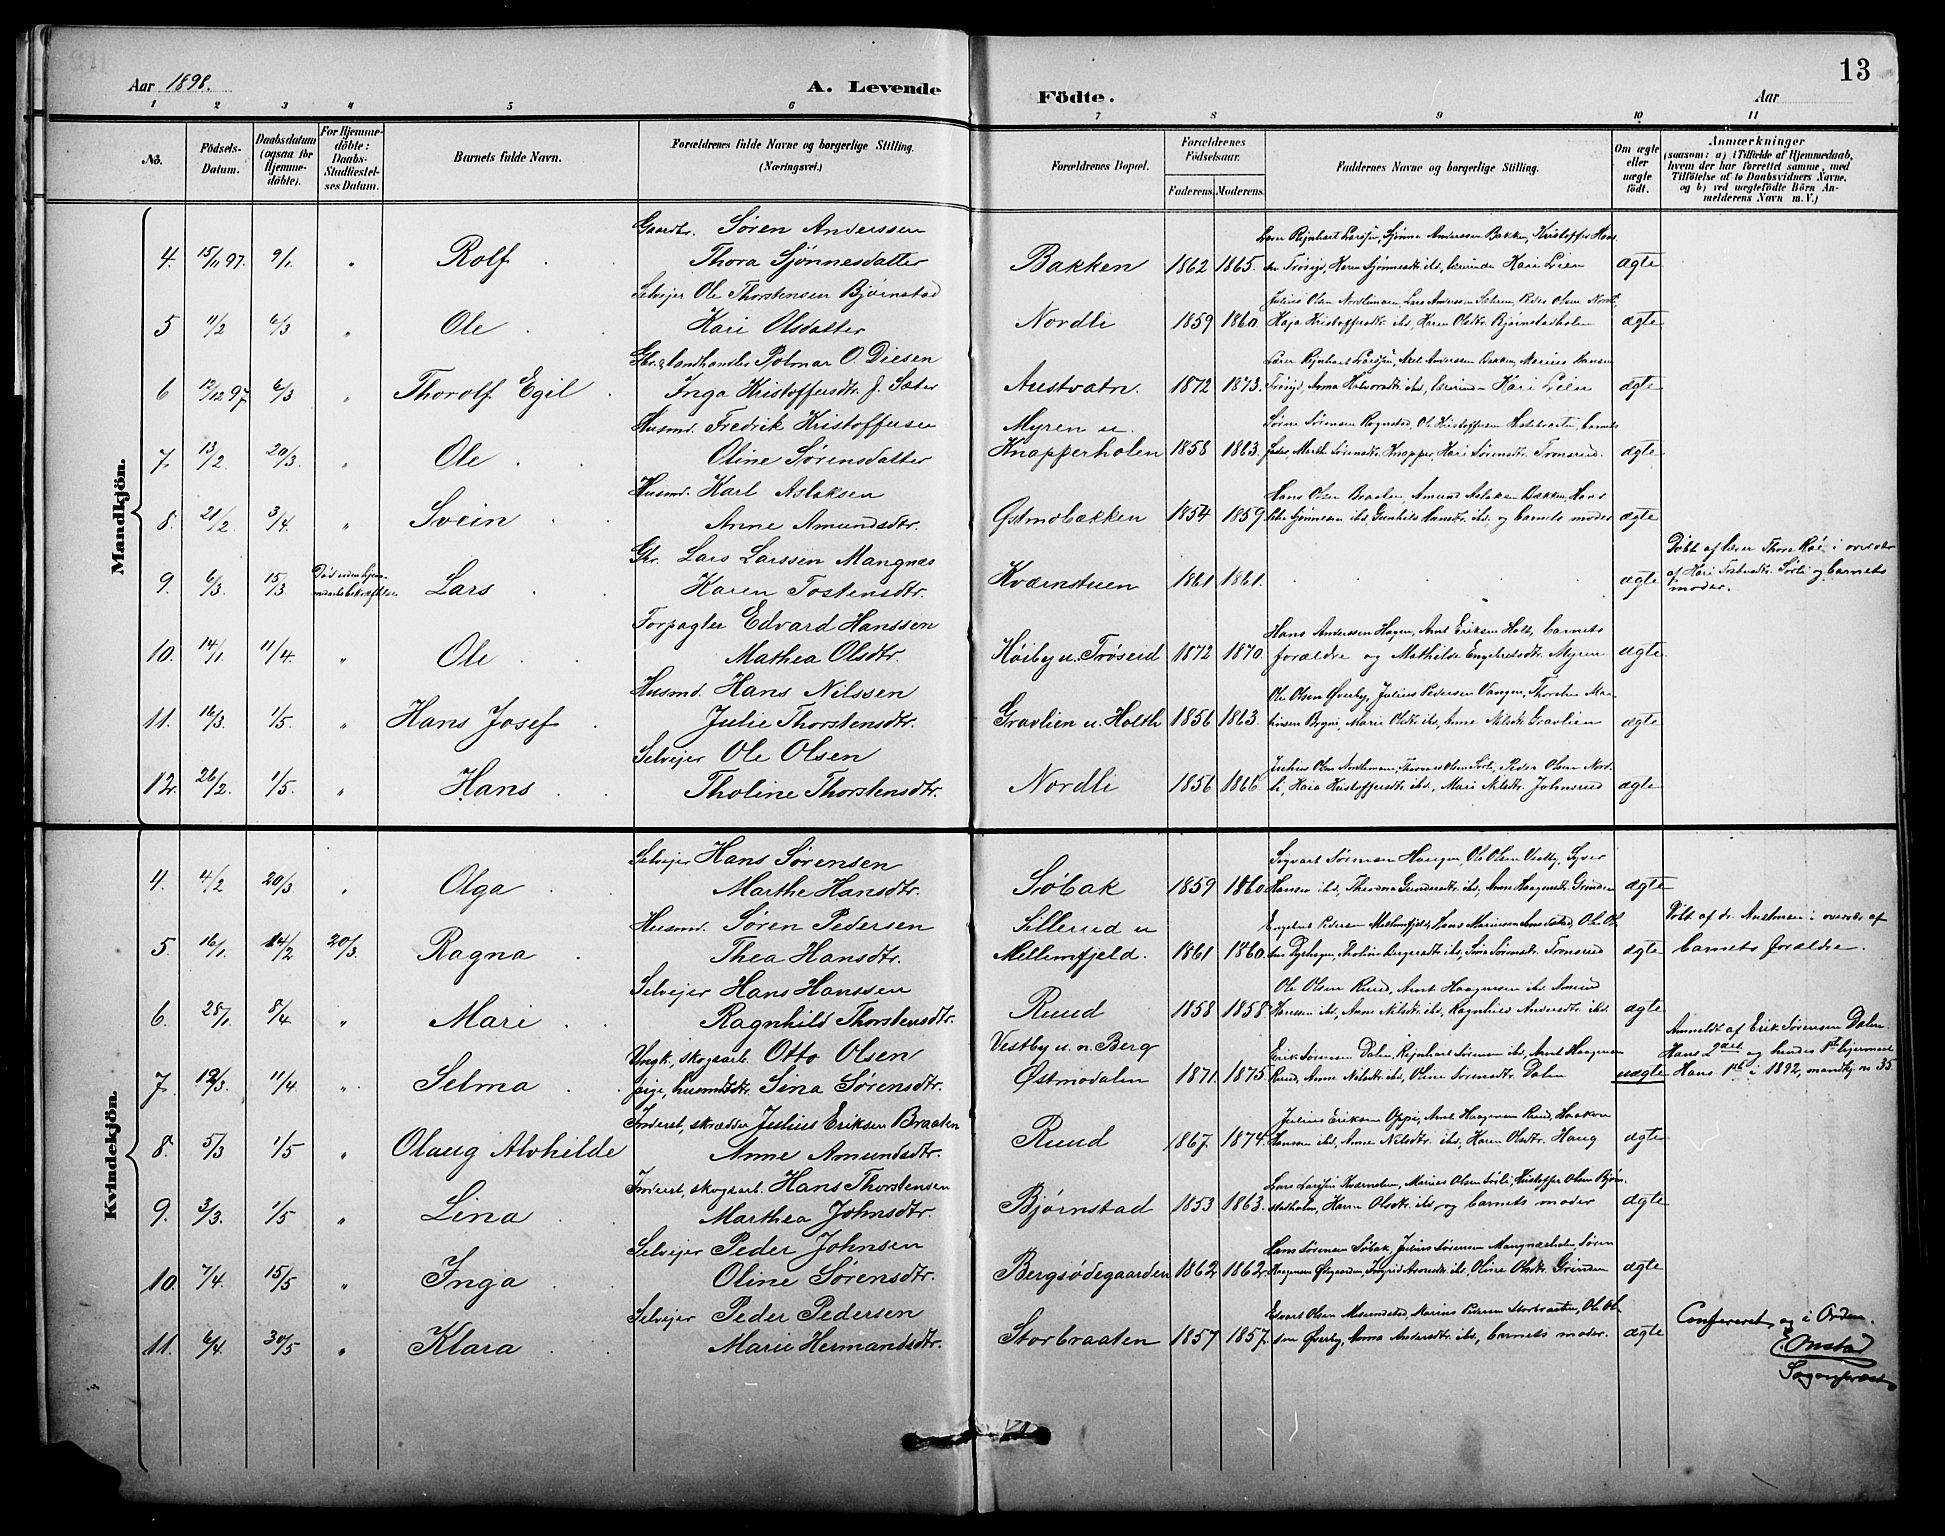 13
Aar 1898. A. Levende Födte. Aar
1 2 3 4 5 6 7 8 9 10 11
No. Födsels-Datum. Daabsdatum (ogsaa for Hjemmedöbte). For Hjemmedöbte: Daabs-Stadfæstelses Datum. Barnets fulde Navn. Forældrenes fulde Navne og borgerlige Stilling. (Næringsvei.) Forældrenes Bopæl. Forældrenes Födselsaar. Faderens. Moderens. Faddernes Navne og borgerlige Stilling. Om ægte eller uægte födt. Anmærkninger (saasom: a) i Tilfælde af Hjemmedaab, hvem der har forrettet samme, med Tilföielse af to Daabsvidners Navne, og b) ved uægtefödte Börn Anmelderens Navn m. V.)
Mandkjön.
Gaardbr. Søren Anderssen
4. 15/11 97. 9/1. " Rolf Thora Sjønnesdatter Bakken 1862 1865. Lærer Rejnhart Larssen, Sjønne Anderssen Bakken, Kristoffer Hanssen Trøseid, Karen Sjønnesdtr. ibd, lærerinde Kari Lien ægte
Selvejer Ole Thorstensen Bjørnstad
5 11/2 6/3 " Ole Kari Olsdatter Nordli 1859 1860. Julius Olsen Nordlimoen, Lars Anderssen Sætren, Peder Olsen Nordli, Kaja Kristoffersdtr. ibd, Karen Olsdtr. Bjørnstadholen ægte
Gbr. & landhandler Polmar O. Diesen
6 12/12 97. 6/3 " Thorolf Egil Inga Kristoffersdtr. f. Sæter Austvatn. 1872 1873. Lærer Rejnhart Larssen, Axel Anderssen Bakken, Marius Hansen Trøseid, Anna Halvorsdtr. ibd, lærerinde Kari Lien ægte
Husmd. Fredrik Kristoffersen
7. 13/2. 20/3. " Ole Oline Sørensdatter Myren u. Knapperholen 1858 1863. Sørine Sørensen Rognstad, Ole Kristoffersen Holstvarten, barnets fader, Marthe Sørensdtr. Knapper, Kari Sørensdtr. Tomsrud. ægte
Husmd. Karl Aslaksen
8. 21/2. 3/4. " Svein Anne Amundsdtr. Østmobækken 1854 1859. Hans Olsen Braaten, Amund Aslaksen Bækken, Hans Peter Sjønnesen ibd, Gunhild Hansdtr. ibd. og barnets moder ægte
Gbr. Lars Larssen Mangnæs
9. 6/3. 15/3. Lars Karen Tostensdtr. Kværnstuen 1861 1861. ægte Døbt af lærer Thore Røe i overvær af Kari Tostensdtr. Sørli og barnets moder.
Forpagter Edvard Hanssen
10. 14/1. 11/4. " Ole Mathea Olsdtr. Køiby u. Trøseid 1872 1870. Hans Anderssen Hagen, Arnt Eriksen Holt, barnets forældre og Mathilde Engebretsdtr. Myren ægte
Husmd. Hans Nilssen
11. 16/3. 1/5. " Hans Josef Julie Thorstensdtr. Gravlien u. Holth 1856 1863. Ole Olsen Øverby, Julius Pedersen Vangen, Thorsten Martinsen Bygni, Marie Olsdtr. ibd, Anne Nilsdtr. Gravlien ægte
Selvejer Ole Olsen
12. 26/2. 1/5. " Hans Tholine Thorstensdtr. Nordli 1856 1866. Julius Olsen Nordlimoen, Thorvald Olsen Sørli, Peder Olsen Nordli, Kaia Kristoffersdtr. ibd., Mari Nilsdtr. Johnsrud ægte
Kvindekjön.
Selvejer Hans Sørensen
4. 4/2 20/3. " Olga Marthe Hansdtr. Søbak 1859 1860. Sigvart Sørensen Haagen, Ole Olsen Vestby, Syver Hansen ibd, Theodora Gundersdtr. ibd, Anne Haagensdtr. Grinden ægte
Husmd. Søren Pedersen
5. 16/1. 14/2 20/3. Ragna Thea Hansdtr. Sillerud u Mellemfjeld. 1861 1860. Engebret Pedersen Mellemfjeld, Hans Mariussen, Ole Olsen Dyrhagen, Tholine Bergersdtr. ibd, Sina Sørensdtr. Tomsrud ægte Døbt af dr. Austmoen i overvær af barnets forældre.
Selvejer Hans Hanssen
6. 28/1. 8/4 " Mari Ragnhild Thorstensdtr. Ruud 1858 1858 Ole Olsen Ruud, Arnt Haagensen ibd. Amund Hansen ibd., Anne Nilsdtr. ibd, Ragnhild Andersdtr. ibd. ægte
Ungk., skogsarb. Otto Olsen
7. 12/3. 11/4 " Selma pige, husmdsdtr. Sina Sørensdtr. Vestby u. n. Berg Østmodalen 1871. 1875. Erik Sørensen Dalen, Rejnhart Sørensen ibd, Arnt Haagensen Ruud, Anne Nilsdtr. ibd, Oline Sørensdtr. Dalen uægte Anmeldt af Erik Sørensen Dalen. Hans 2det og hendes 1ste lejermaal. Hans 1ste i 1892, mandkj. nr 35
Inderst, skrædder Julius Eriksen Braaten
8. 5/3 1/5 " Olaug Alvhilde Anne Amundsdtr. Ruud 1867. 1874. Julius Eriksen Oppi, Arnt Haagensen Ruud, Haakon Hansen ibd, Anne Nilsdtr. ibd, Karen Olsdtr. Haug ægte
Inderst, skogsarb. Hans Thorstensen
9. 3/3. 1/5 " Lina Marthea Johnsdtr. Bjørnstad 1853 1863. Lars Larssen Kværnstuen, Marius Olsen Sørli, Kristoffer Olsen Bjørnstadholen, Karen Olsdtr. ibd, og barnets moder ægte
Selvejer Peder Johnsen
10. 7/4. 15/5 " Inga Oline Sørensdtr. Bergsødegaarden 1862 1862. Hans Sørensen Søbak, Julius Sørensen Mangnæsholen, Søren Haagensen Østgaarden, Ingrid Arnesdtr. ibd., Oline Olsdtr. Grinden ægte
Selvejer Peder Pedersen
11. 6/4. 30/5 " Klara Marie Hermandsdtr. Storbraaten 1857 1857. Edvart Olsen, Marius Pedersen Storbraaten, Ole Olsen Øverby, Anna Andersdtr. ibd, barnets moder. ægte
Confereret og i Orden.
E. Onstad
Sogneprest